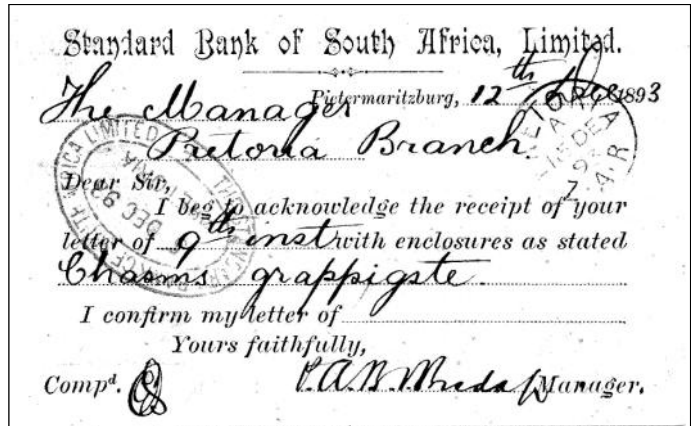 Standard Bank of South Africa, Limited.
Pietermaritzburg, 12th Dec 1893
The Manager
Pretoria Branch.
Dear Sir,
I beg to acknowledge the receipt of your
letter of 9th inst with enclosures as stated
Chasms grappigste.
I confirm my letter of
Yours faithfully,
Comp^d.
Manager.